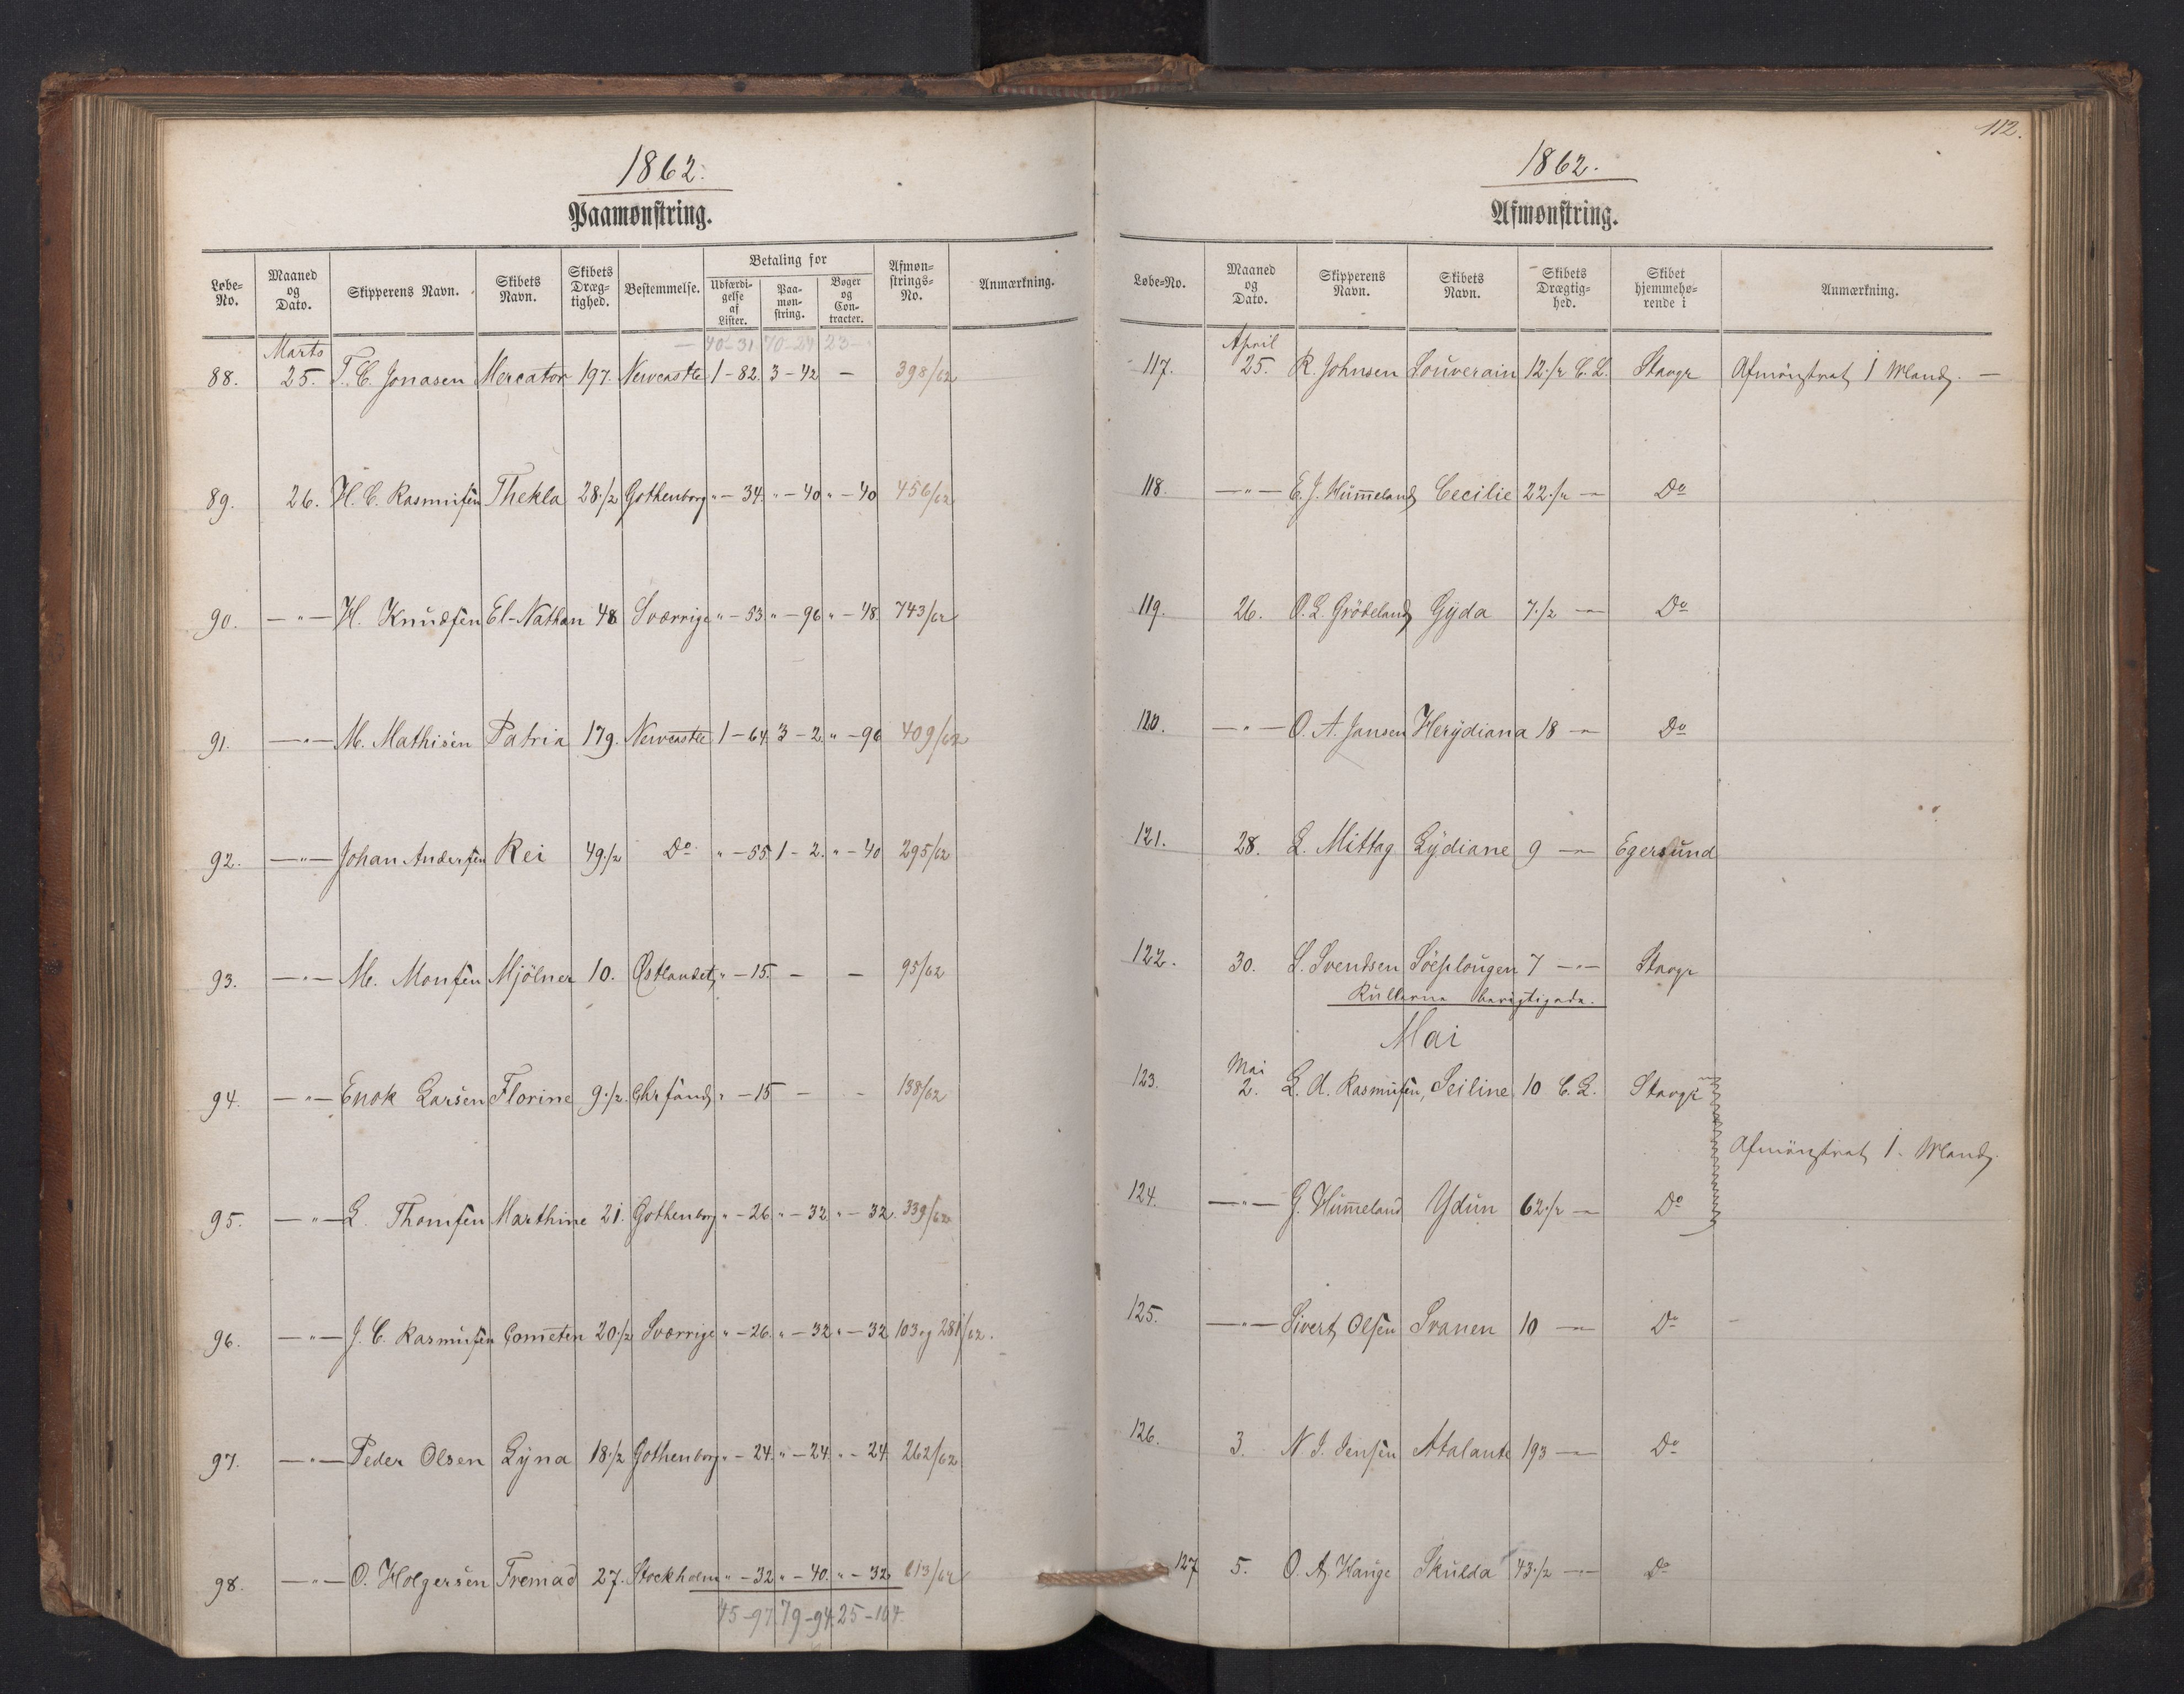 1862.
Paamønstring.
Løbe-No. Maaned og Dato. Skipperens Navn. Skibets Navn. Skibets Drægtighed. Bestemmelse. Betaling for Udfærdigelse af Lister. Paamønstring. Bøger og Contracter. Afmønstrings-No. Anmærkning.
40-31 70-24 23-
Marts
88. 25. T. C. Jonasen Mercator 197. Newcastle 1-82. 3-42 - 398/62
89. 26. H. C. Rasmusen Thekla 28 1/2 Gothenborg "-34. "-40 "-40 456/62
90. -"- H. Knudsen El-Nathan 48 Sverrige "-53. "-96 "-48. 743/62
91. -"- M. Mathisen Patria 179. Newcastle 1-64. 3-2. "-96 409/62
92. -"- Johan Andersen Rei 49 1/2 Do "-55 1-2. "-40 295/62
93. -"- M. Monsen Mjölner 10. Østlandet "-15. - - 95/62
94. -"- Enok Larsen Florine 9 1/2. Chrsand "-15 - - 138/62
95. -"- L. Thomsen Marthine 21. Gothenborg "-26 "-32 "-32. 339/62
96. -"- J. C. Rasmusen Cometen 20 1/2 Sverrige "-26. "-32 "-32 103 og 281/62.
97. -"- Peder Olsen Lÿna 18 1/2 Gothenborg "-24. "-24. "-24. 262/62
98. -"- O. Holgersen Fremad 27. Stockholm "-32 "-40. "-32. 613/62
45-97 79-94. 25-104.
112.
1862.
Afmønstring.
Løbe-No. Maaned og Dato. Skipperens Navn. Skibets Navn. Skibets Drægtighed. Skibet hjemmehørende i Anmærkning.
April
117. 25. R. Johnsen Souverain 12 1/2 C. L. Stavgr Afmönstret 1 Mand. -
118. -"- E. J. Hummeland Cecilie 22 1/2 -"- Do
119. 26. O. L. Grödeland Gÿda 7 1/2 -"- Do
120. -"- O. A. Jansen Herÿdiana 18 -"- Do
121. 28. L. Mittag Lÿdiane 9 -"- Egersund
122. 30. S. Svendsen Söeplougen 7 -"- Stavgr
Rullerne berigtigede.
Mai
Mai
123. 2. L. A. Rasmusen, Seiline 10 C. L. Stavgr
Afmönstret 1. Mand.
124. -"- G. Hummeland Ydun 62 1/2 -"- Do
125. -"- Sivert Olsen Svanen 10 -"- Do
126. 3. N. J. Jensen Atalante 193 -"- Do
127 5. O. A. Hauge Skulda 43 1/2 -"- Do